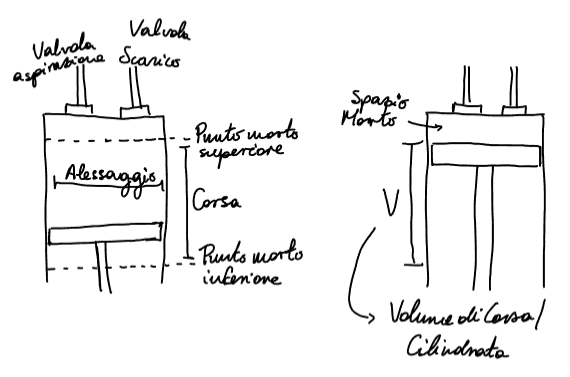 Valvola
aspirazione
Valvola
Scarico
Punto morto
superiore
Alessaggio
Corsa
Punto morto
inferiore
Spazio
Morto
V
Volume di Corsa/
Cilindrata